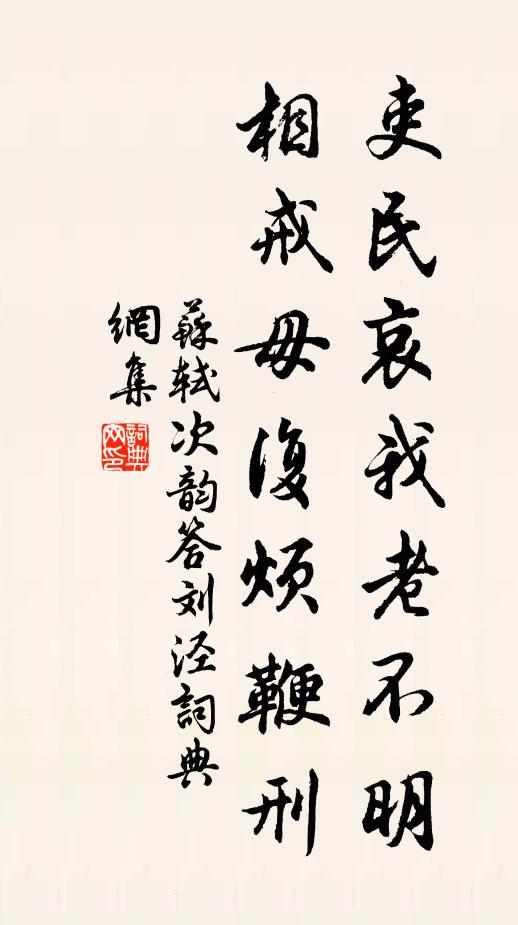 吏民哀我老不明
相戒毋復煩鞭刑
蘇軾次韵答刘泾詞典
網集
詞典
网印